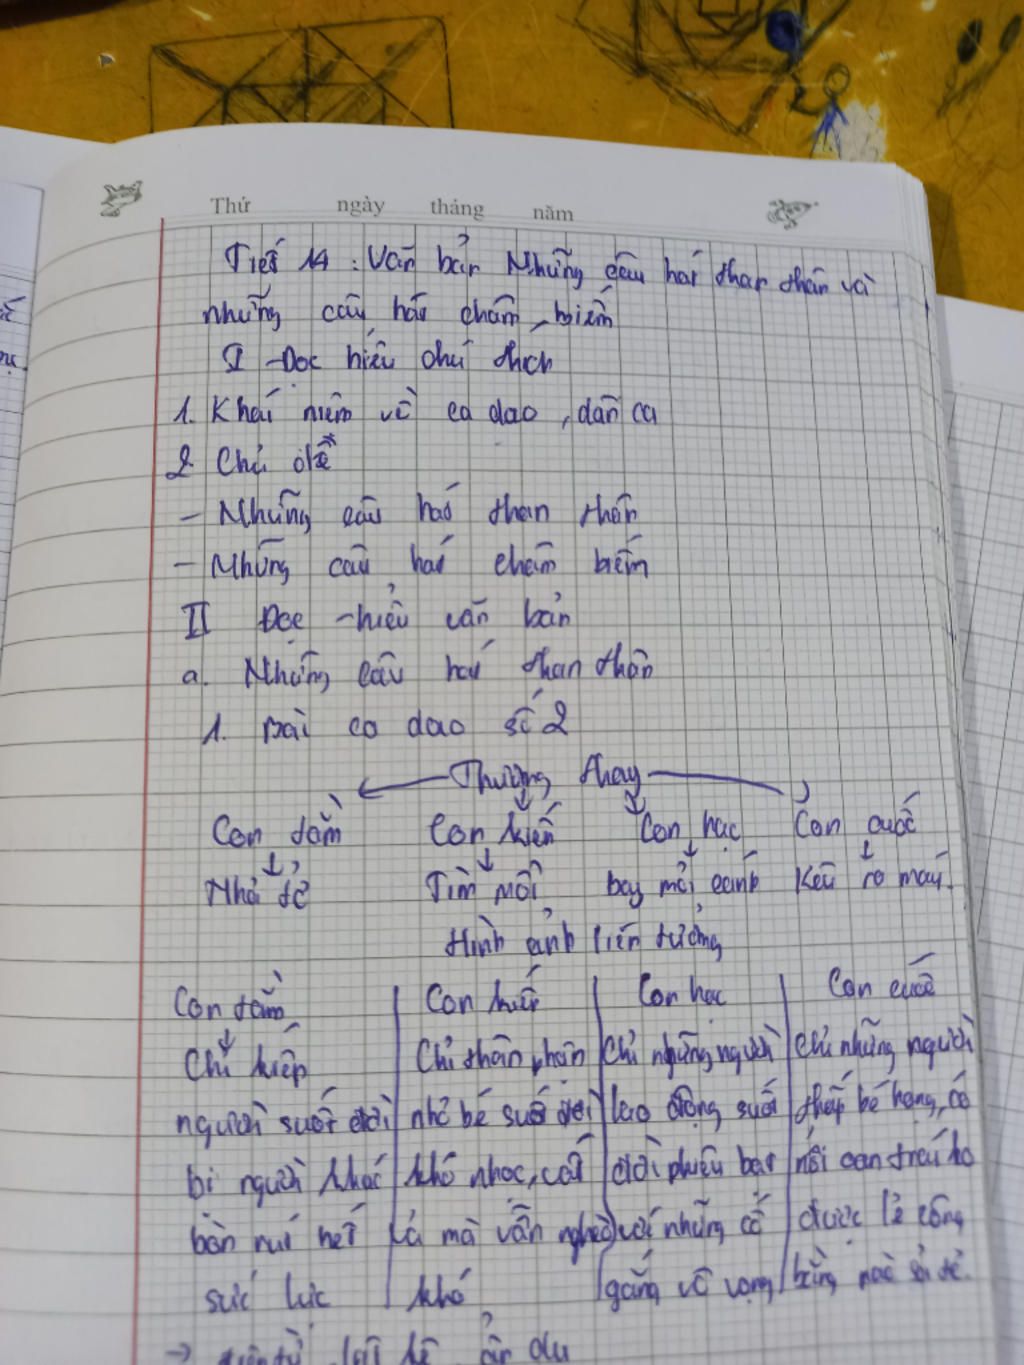 Thứ ngày tháng năm
Tiết 14 : Văn bản Những câu hát than thân và
những câu hát châm biếm
I - Đọc hiểu chú thích
1. Khái niệm về ca dao, dân ca
2 Chủ đề
- Những câu hát than thân
- Những câu hát châm biếm
II Đọc - hiểu văn bản
a. Những câu hát than thân
1. Bài ca dao số 2
Thương thay
Con tằm Con kiến Con hạc Con cuốc
Nhả tơ Tìm mồi bay mỏi cánh Kêu ra máu.
Hình ảnh liên tưởng
Con tằm Con kiến Con hạc Con cuốc
Chỉ kiếp Chỉ thân phận Chỉ những người Chỉ những người
người suốt đời nhỏ bé suốt đời lao động suốt thấp bé họng, có
bị người khác khó nhọc, đời phiêu bạt nỗi oan trái ko
bòn rút hết mà vẫn nghèo với những cố được lẽ công
sức lực khó gắng vô vọng bằng nào
-> lặp ẩn dụ